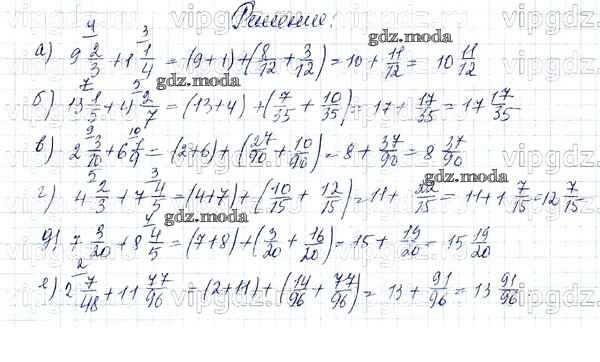 Решение:
а) 9 2/3 + 1 1/4 = (9+1) + (8/12 + 3/12) = 10 + 11/12 = 10 11/12
б) 13 1/5 + 4 2/7 = (13+4) + (7/35 + 10/35) = 17 + 17/35 = 17 17/35
в) 2 3/10 + 6 1/9 = (2+6) + (27/90 + 10/90) = 8 + 37/90 = 8 37/90
г) 4 2/3 + 7 4/5 = (4+7) + (10/15 + 12/15) = 11 + 22/15 = 11 + 1 7/15 = 12 7/15
д) 7 3/20 + 8 4/5 = (7+8) + (3/20 + 16/20) = 15 + 19/20 = 15 19/20
е) 2 7/48 + 11 77/96 = (2+11) + (14/96 + 77/96) = 13 + 91/96 = 13 91/96
gdz.moda
gdz.moda
gdz.moda
gdz.moda
gdz.moda
gdz.moda